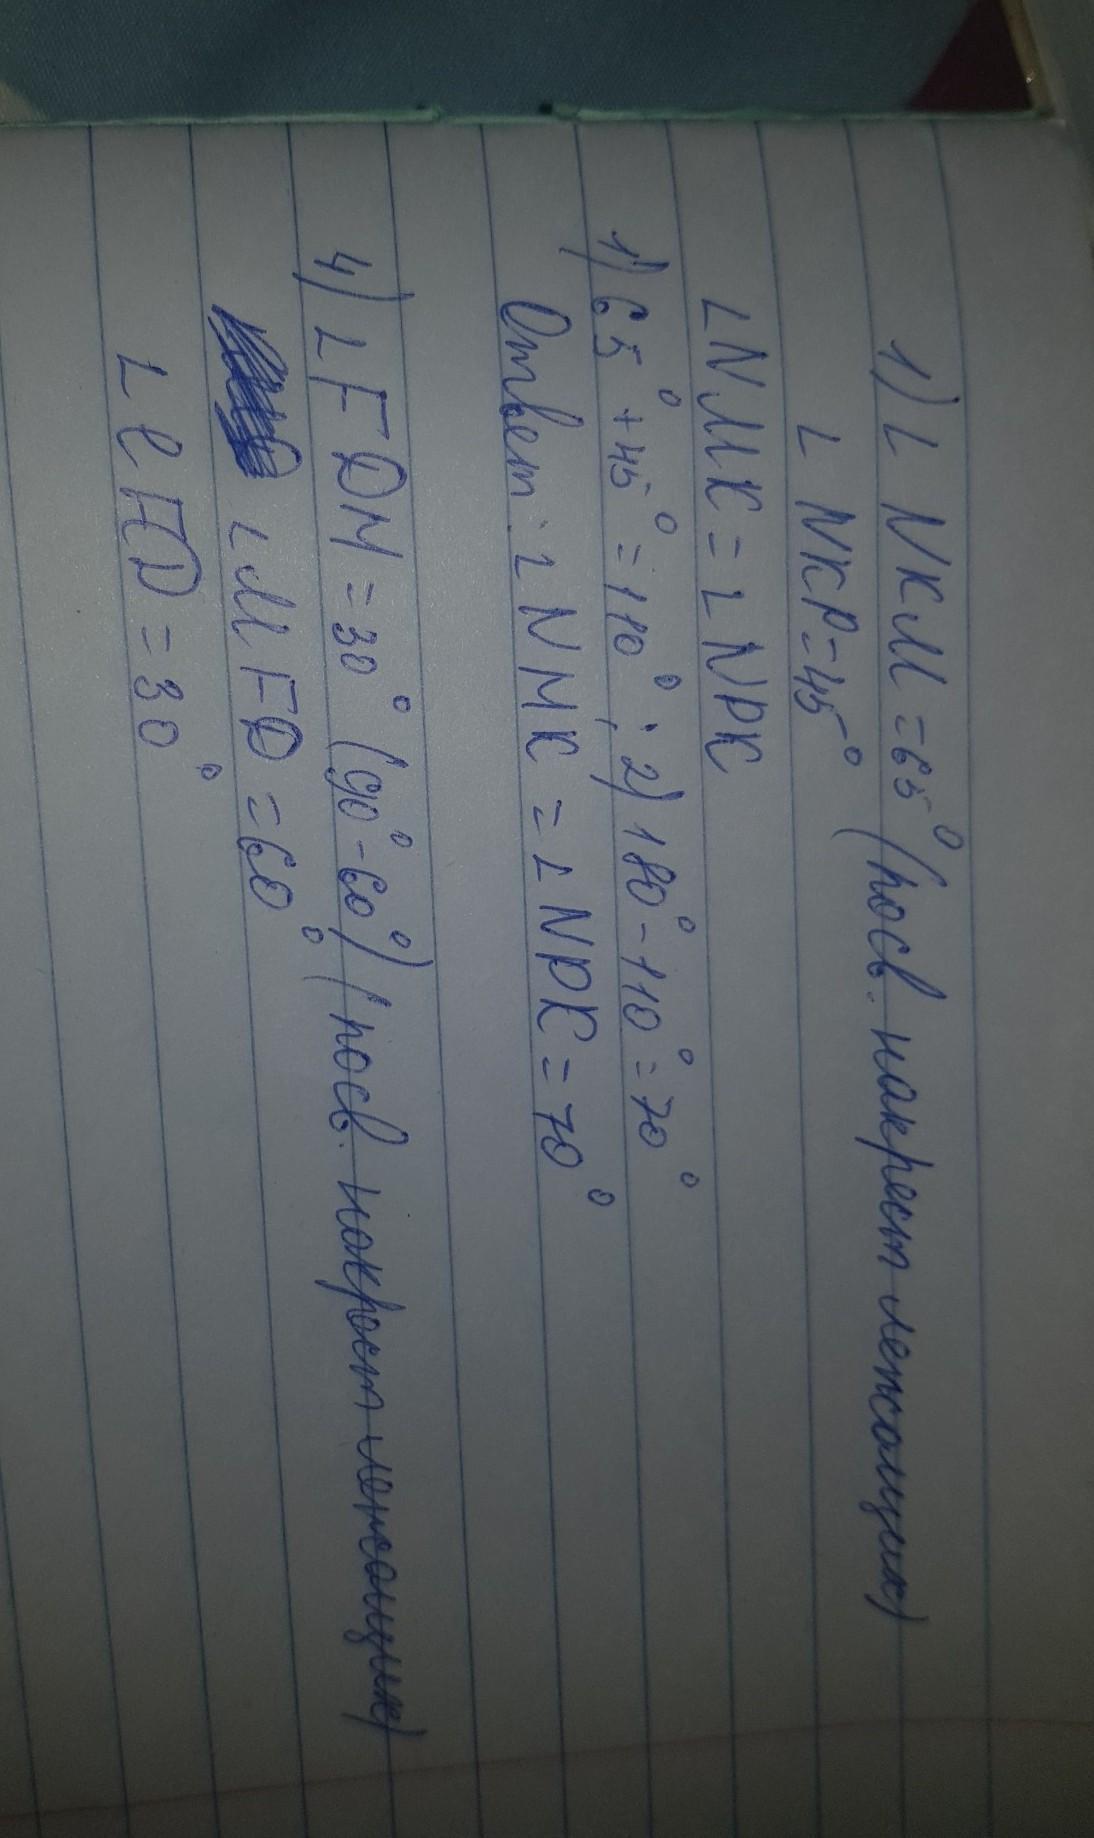 1) ∠ NKM = 65° (по св. накрест лежащих)
∠ NKP = 45°
∠NMK = ∠ NPK
1) 65° + 45° = 110°; 2) 180° - 110° = 70°
Ответ: ∠ NMK = ∠ NPK = 70°
4) ∠ FDM = 30° (90° - 60°) (по св. накрест лежащих)
∠ MFD = 60°
∠ CFD = 30°